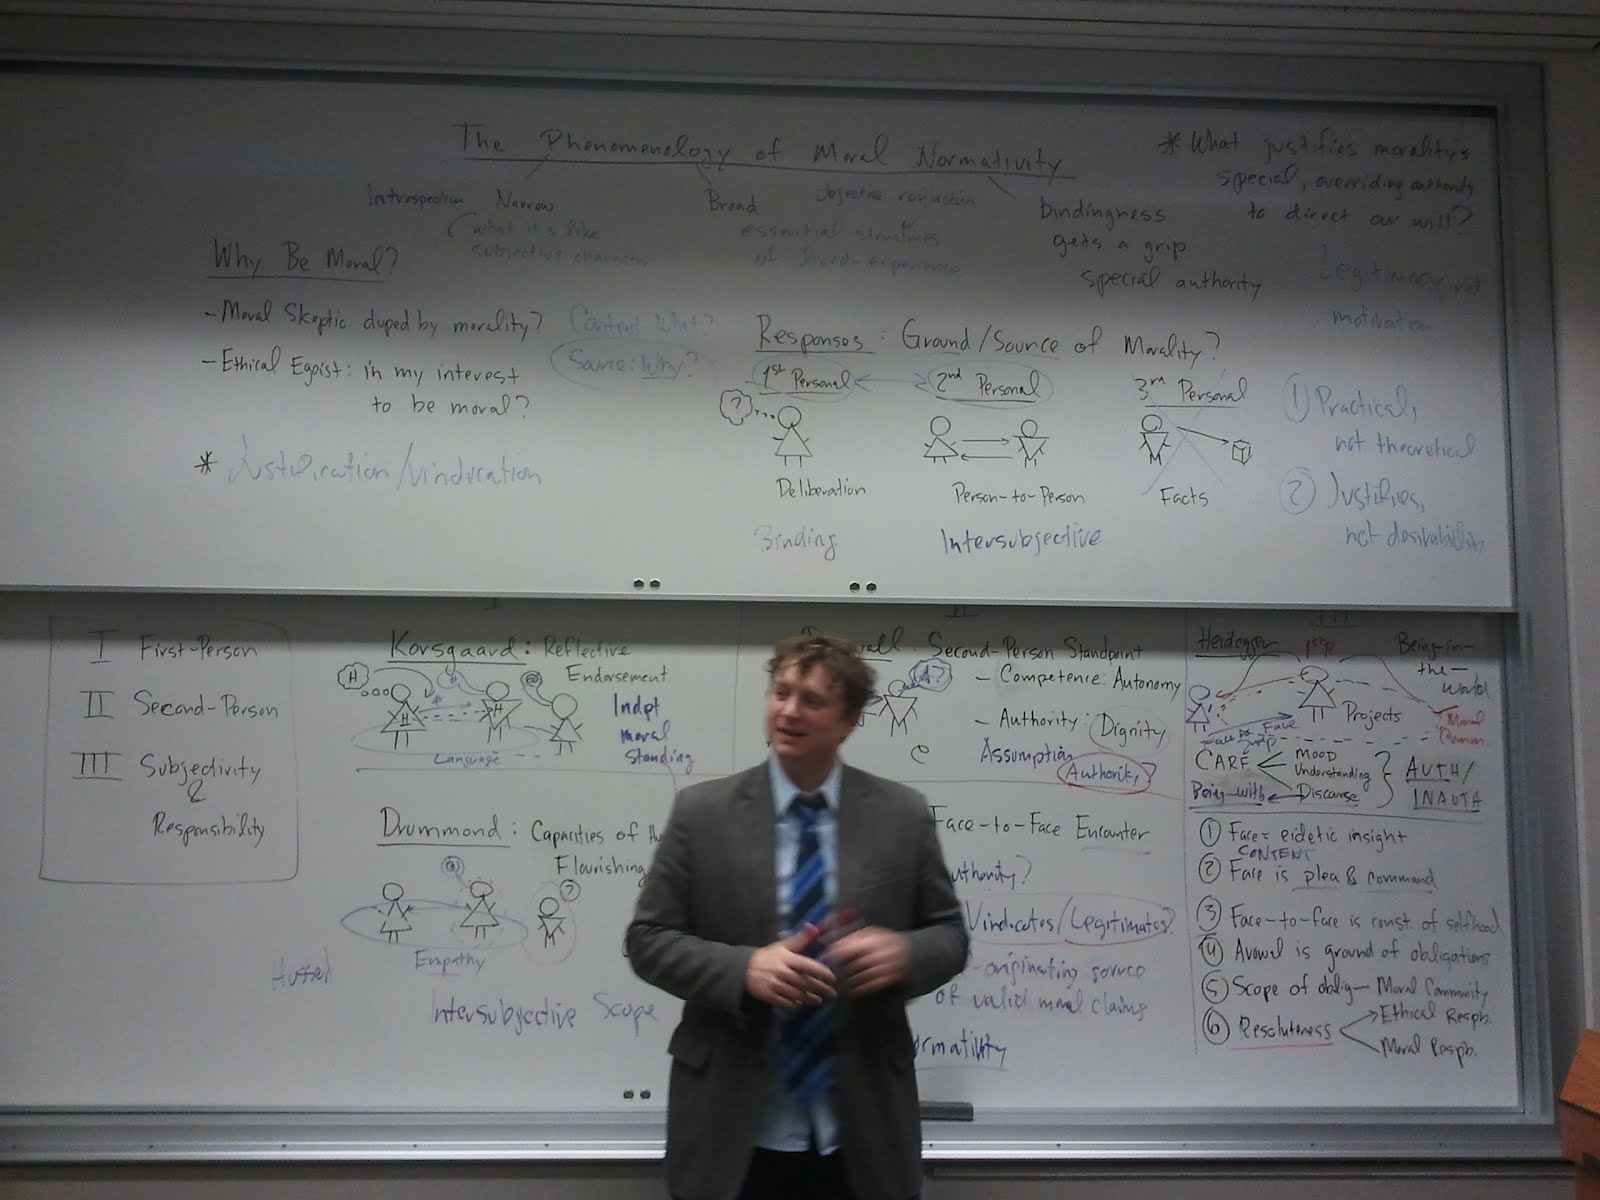 The Phenomenology of Moral Normativity
Introspection Narrow
(what it's like
subjective character
Broad
objective reflection
essential structures
of lived-experience
bindingness
gets a grip
special authority
* What justifies morality's
special, overriding authority
to direct our will?
Legitimacy, not
motivation
Why Be Moral?
- Moral Skeptic duped by morality?
- Ethical Egoist: in my interest
to be moral?
Content What?
Same: Why?
* Justification/vindication
Responses: Ground/Source of Morality?
1st Personal
2nd Personal
3rd Personal
?
Deliberation
Person-to-Person
Facts
Binding
Intersubjective
1 Practical,
not theoretical
2 Justifies,
not desirability
I First-Person
II Second-Person
III Subjectivity
&
Responsibility
Korsgaard: Reflective
Endorsement
H
H
H
Language
Indpt
moral
standing
Drummond: Capacities of
Flourishing
?
Empathy
Husserl
Intersubjective Scope
II
Second-Person Standpoint
- Competence: Autonomy
- Authority: Dignity
Assumption
Authority?
Face-to-Face Encounter
Vindicates/Legitimates?
-originating source
of valid moral claims
III
Heidegger
1stP
Being-in-
the-
world
Projects
Moral
Comm.
Face to Face
CARE
Mood
Understanding
Discourse
Being-with
AUTH/
INAUTH
1 Face = eidetic insight
CONTENT
2 Face is plea & command
3 Face-to-face is const of selfhood
4 Avowal is ground of obligations
5 Scope of oblig— Moral Community
6 Resoluteness
Ethical Respb.
Moral Respb.